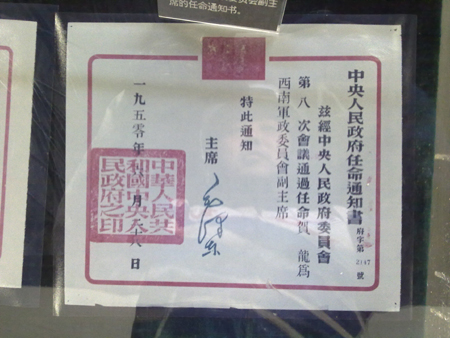 席的任命通知书。
中央人民政府任命通知書
府字第2147號
茲經中央人民政府委員會
第八次會議通過任命賀龍為
西南軍政委員會副主席
特此通知
主席
毛澤東
一九五零年 月 六日
中華人民共
和國中央人
民政府之印